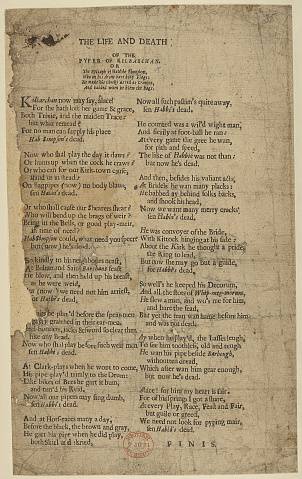 THE LIFE AND DEATH
OF THE
PYPER OF KILBARCHAN.
OR
The Epitaph of Habbie Simpson,
Who on his drone bore bony Flags;
He made his cheeks as red as Crimson,
And babbed when he blew the Bags.
Kilbarchan now may say, alace!
For she hath lost her game & grace,
Both Trixie, and the maiden Trace:
but what remead?
For no man can supply his place
Hab Simpson's dead.
Now who shal play the day it daws?
Or hunts up when the cock he craws?
Or who can for our Kirk-town cause,
stand us in stead?
On Bagpipes (now) no body blaws,
sen Habbie's dead.
Or who shall cause our Shearers shear?
Who will bend up the brags of weir?
Bring in the Bells, or good play-meir,
in time of need?
Hab Simpson could, what need you speer?
but (now) he's dead.
So kindly to his neighbours neast,
At Beltan and Saint Barchans feast
He blew, and then held up his breast,
as he were weid,
But (now) we need not him arrest,
for Habbie's dead.
At Fairs he play'd before the spear-men
All gaily graithed in their gear-men:
Steel Bonnets, jacks, Swords so clear then
like any Bead.
Now who shall play before such weir-men
sen Habbie's dead.
At Clark-plays when he wont to come,
His pipe play'd trimly to the Drum:
Like bikes of Bees he gart it bum,
and tun'd his Reid.
Now all our pipers may sing dumb,
sen Habbie's dead.
And at Horse-races many a day,
Before the black, the brown and gray,
He gart his pipe when he did play,
both skirl and skried,
Now all such pastim's quite away,
sen Habbie's dead.
He counted was a wil'd wight man,
And fiercly at foot-ball he ran:
At every game the gree he wan,
for pith and speed,
The like of Habbie was not than:
but now he's dead.
And then, besides his valiant acts,
At Bridels he wan many placks:
He bobbed ay behind folks backs,
and shook his head,
Now we want many merry cracks,
sen Habbie's dead.
He was convoyer of the Bride,
With Kittock hinging at his side:
About the Kirk he thought a pride
the Ring to lead,
But now she may go but a guide,
for Habbie's dead.
So well's he keeped his Decorum,
And all the stots of Whip-meg-morum,
He slew a man, and wo's me for him,
and bare the fead,
But yet the man wan hame before him
and was not dead.
Ay when he play'd, the Lasses leugh,
To see him toothless, old and teugh
He wan his pipe beside Borheugh,
withoutten dread,
Which after wan him gear eneugh,
but now he's dead.
Alace! for him my heart is sair,
For of his springs I got a share,
At every Play, Race, Feast and Fair,
but guile or greed,
We need not look for pyping mair,
sen Habbie's dead.
FINIS.